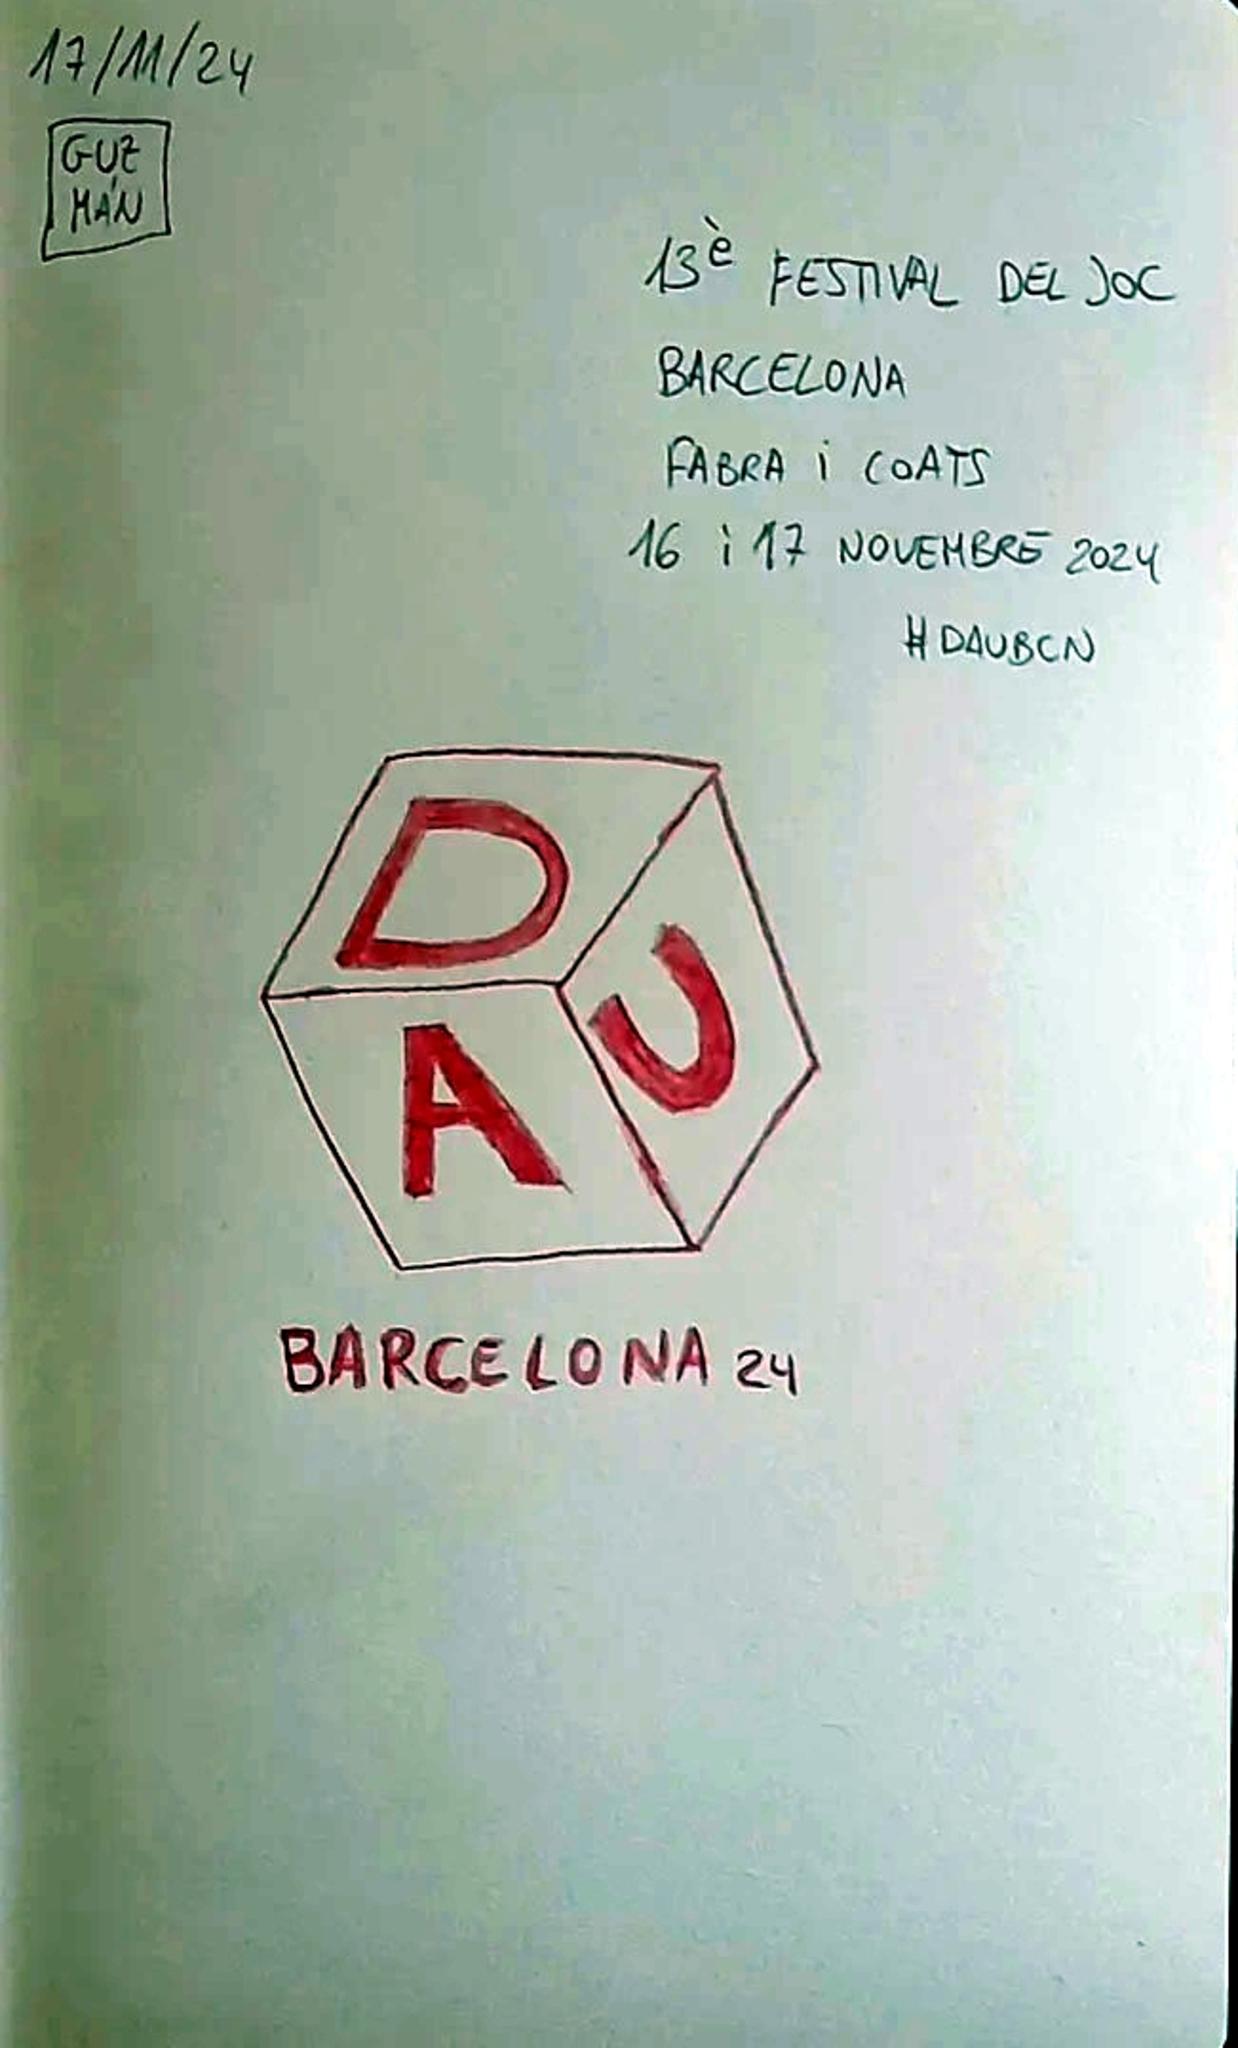 17/11/24
GUZ
MÁN
13è FESTIVAL DEL JOC
BARCELONA
FABRA i COATS
16 i 17 NOVEMBRE 2024
#DAUBCN
D
A U
BARCELONA 24